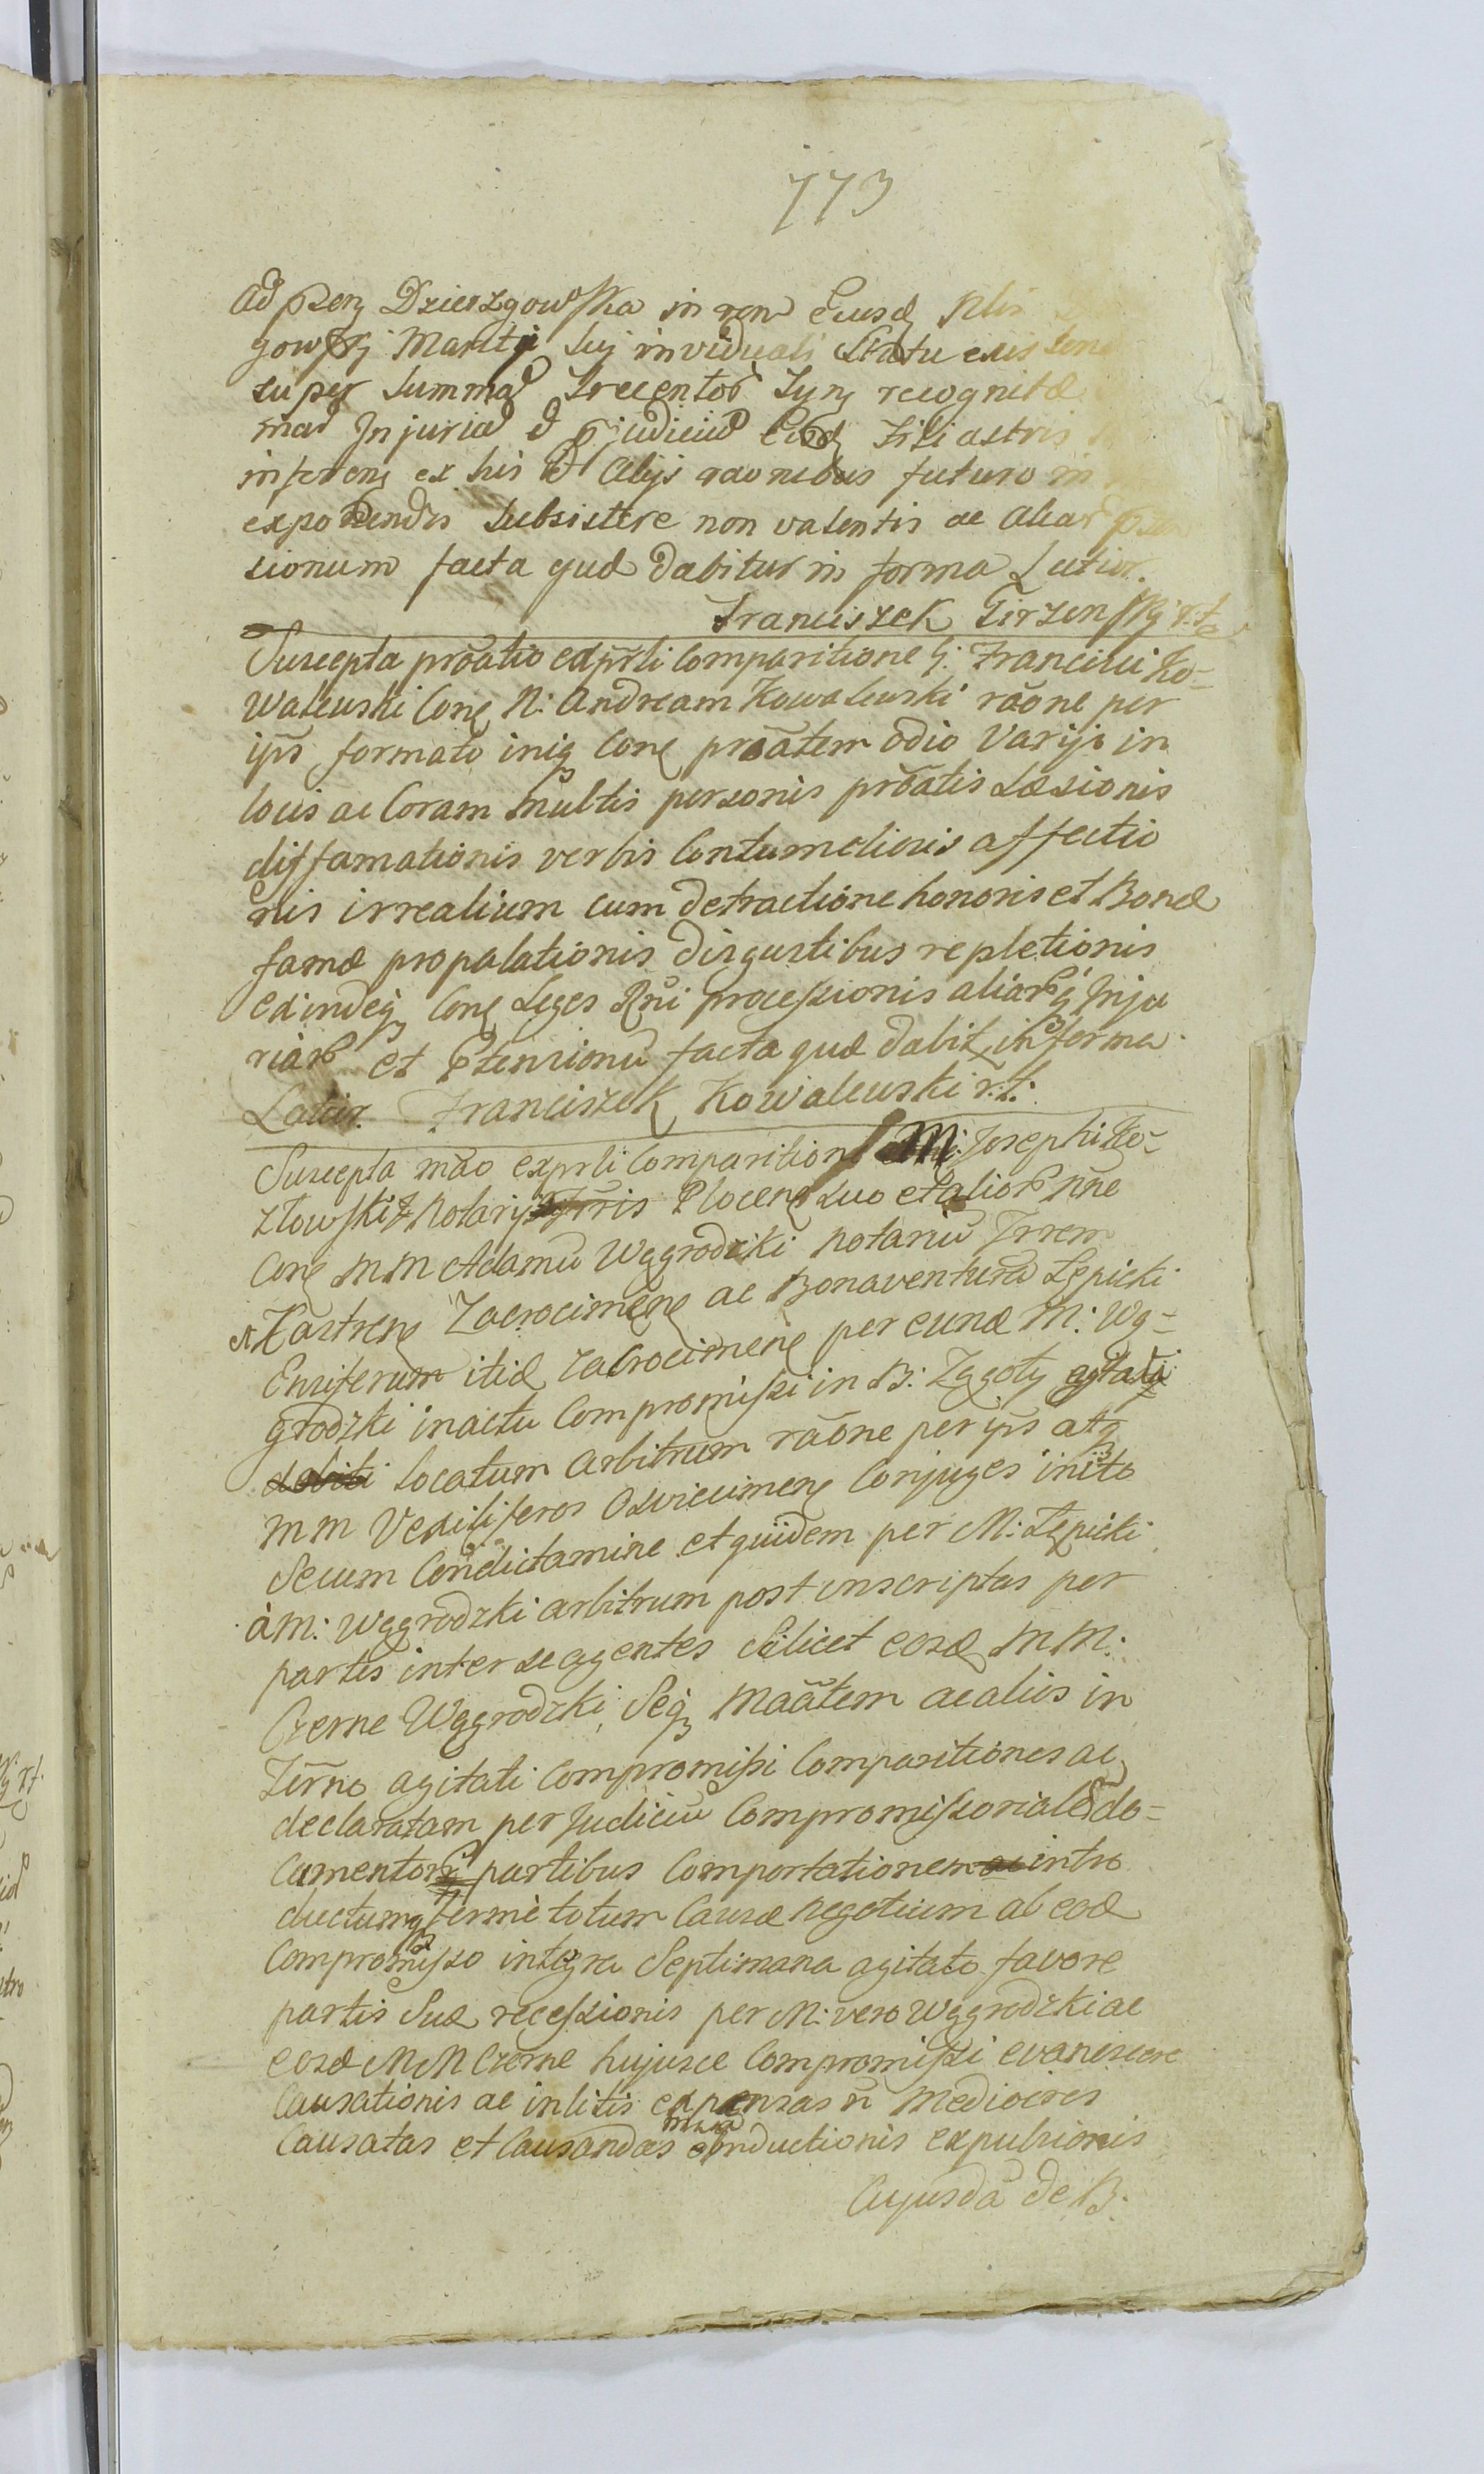 773
ad psens Dzierzgowska in rem Ejusd
gowski Mariti sui in viduali Statu
super summa Trecentor Tyn recognita
mar Injuria & pjudiciu Filiastris
inferens ex his & alijs raonibus futuro in
exponendis subsistere non valentis ac aliar
sionum facta quæ dabitur in forma Latior.
Franciszek
Suscepta protatio exprsli Comparitione G: Francisci Ko-
walewski Cone N: Andream Kowalewski raone per
ips formato iniq Cone protatem odio Varijs in
locis ac Coram multis personis protatis Læsionis
diffamationis verbis Contumeliosis affectio
nis irrealium cum detractione honoris et Bonæ
famæ propalationis disgustibus repletionis
exindeq Cone Leges Rni processionis aliarq Inju
riar et Ptensionu facta quæ dabit in forma
Latior. Franciszek Kowalewski r.t.
Suscepta mão exprsli Comparitione M: Josephi Ko-
złowski Notarij Plocens suo et alior nne
Cone MM Adamu Węgrodzki Notariu Trrem
et Kastrens Zacrocimens ac Bonaventura Łępicki
Ensiferum itid Zacrocimens per eund M: Wę-
grodzki in actu Compromissi in B: Zągoty agitati
locatum arbitrum raone per ips atq
MM Vexilliferos Osviecimens Conjuges inito
Secum Condictamine et quidem per M: Łępicki
à M: Węgrodzki arbitrum post inscriptas per
partes inter se agentes Scilicet eosd MM:
Czerne Węgrodzki, Seq Maatem ac alios in
Trrno agitati Compromissi Comparitiones ac
declaratam per Judiciu Compromissoriale do-
cumentor partibus Comportationem ac intro
ductumq ferme totum Causæ negotium ab eod
Compromisso integra Septimana agitato favore
partis Suæ recessionis per M: vero Węgrodzki ac
eosd MM Czerne hujusce Compromissi evanescere
Causationis ac in litis expensas n mediocres
Causatas et Causandas conductionis expulsionis
Cujusda de B: